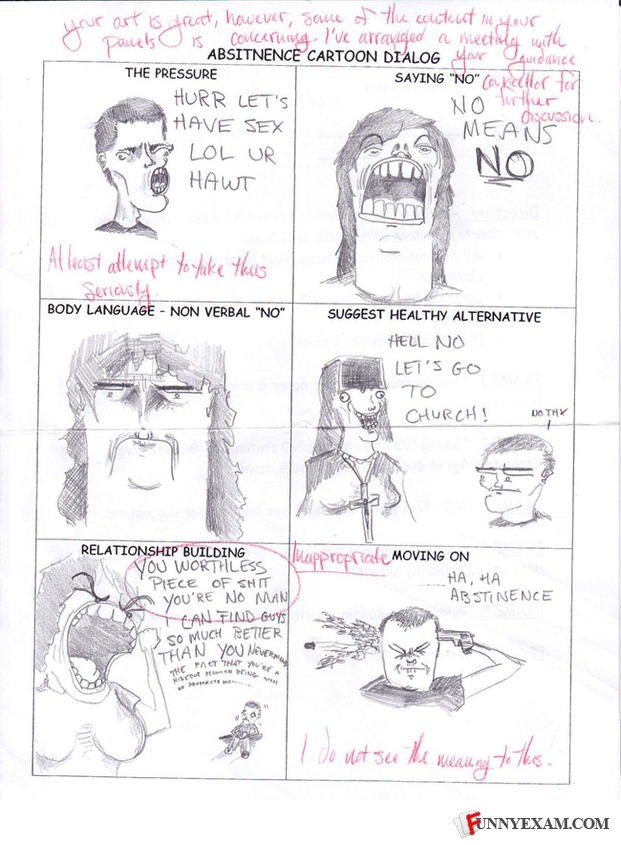 your art is great, however, some of the content in your
panels is concerning. I've arranged a meeting with
your guidance
councellor for
further
discussion.
ABSITNENCE CARTOON DIALOG
THE PRESSURE
HURR LET'S
HAVE SEX
LOL UR
HAWT
At least attempt to take this
seriously.
SAYING "NO"
NO
MEANS
NO
BODY LANGUAGE - NON VERBAL "NO"
SUGGEST HEALTHY ALTERNATIVE
HELL NO
LET'S GO
TO
CHURCH!
NO THX
RELATIONSHIP BUILDING
YOU WORTHLESS
PIECE OF SHIT
YOU'RE NO MAN
I CAN FIND GUYS
SO MUCH BETTER
THAN YOU NEVERMIND
THE FACT THAT YOU'RE A
HIDEOUS HUMAN BEING WITH
Inappropriate
MOVING ON
HA, HA
ABSTINENCE
I do not see the meaning to this!
FUNNYEXAM.COM